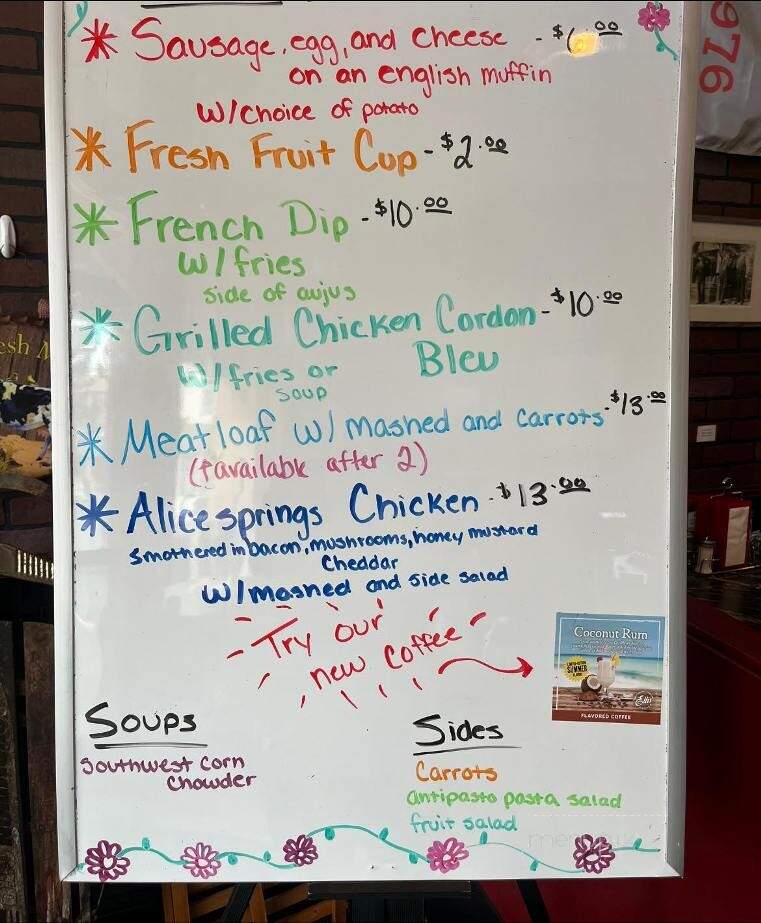 976
* Sausage, egg, and cheese - $6.00
on an english muffin
w/choice of potato
* Fresh Fruit Cup - $2.00
* French Dip - $10.00
w/fries
side of aujus
* Grilled Chicken Cordon Bleu - $10.00
w/fries or
soup
* Meatloaf w/ mashed and carrots - $13.00
(*available after 2)
* Alice springs Chicken - $13.00
smothered in bacon, mushrooms, honey mustard
cheddar
w/mashed and side salad
Try our
new coffee
Coconut Rum
SUMMER
FLAVORED COFFEE
Soups
Southwest Corn
Chowder
Sides
Carrots
antipasto pasta salad
fruit salad